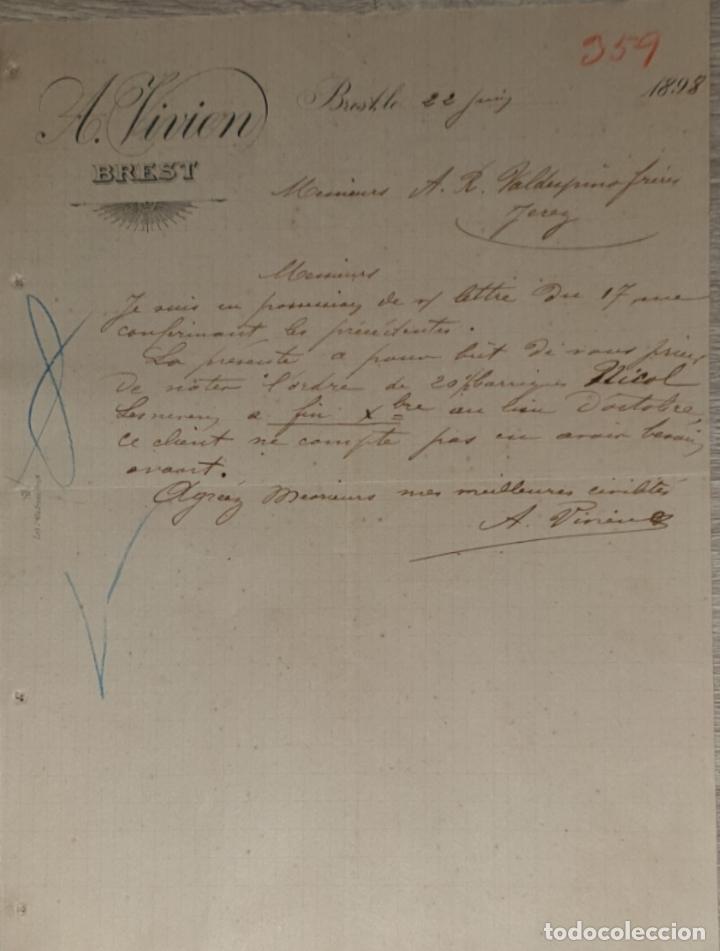 359
A. Vivien
BREST
Brest, le 22 Juin 1898
Messieurs A. R. Valdespino frères
Jerez
Messieurs
Je suis en possession de v/ lettre du 17 me
confirmant les précédentes.
La présente a pour bût de vous prier
de noter l'ordre de 20 Barriques Nicol
Lesneven, a fin Xbre au lieu D'octobre,
ce client ne compte pas en avoir besoin
avant.
Agréez Messieurs mes meilleures civilités
A. Vivien
todocoleccion.net